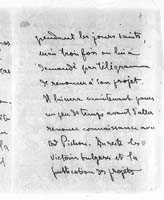 pendant les jours suivts,
mais trois fois on lui a
demandé par télégramme
de renoncer à son projet.
Il hiverne maintenant pour
un peu de temps avant d'aller
renouer connaissance avec
M. Pichon. De reste les
victoires bulgares et la
publication des projets